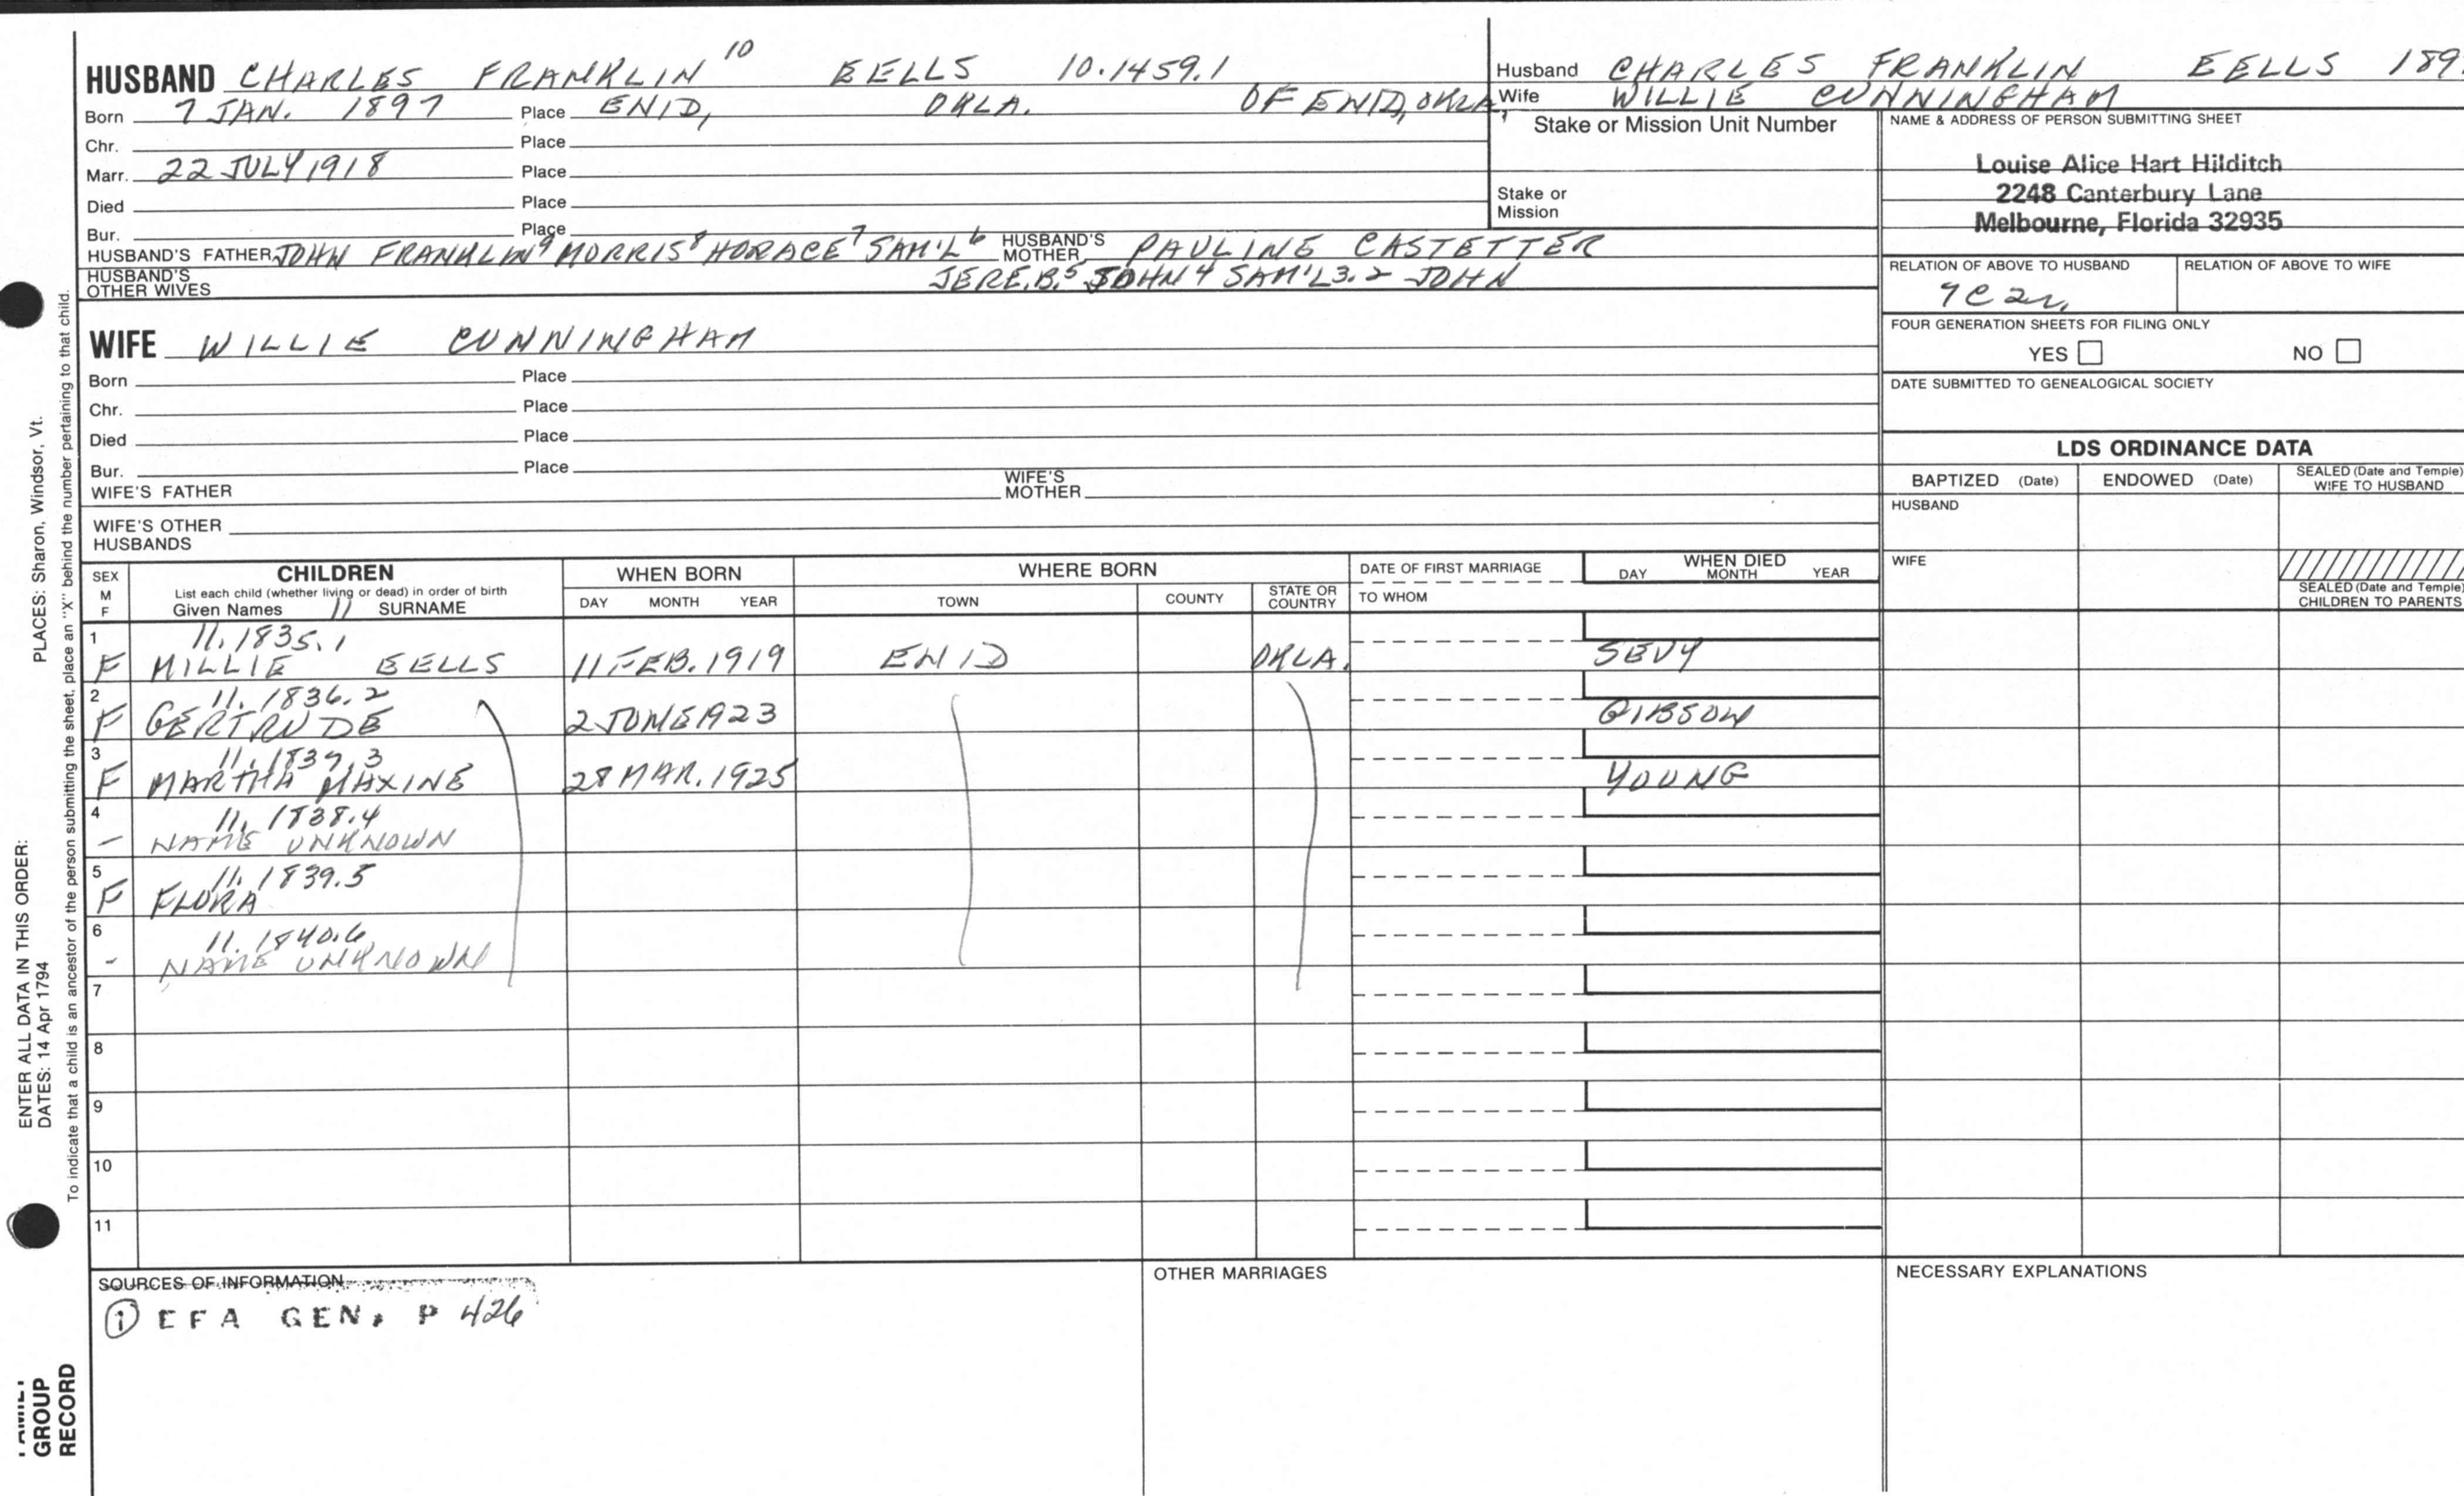 HUSBAND CHARLES FRANKLIN 10 EELLS 10.1459.1
Born 7 JAN. 1897 Place ENID, OKLA. OF ENID, OKLA,
Chr. Place
Marr. 22 JULY 1918 Place
Died Place
Bur. Place
HUSBAND'S FATHER JOHN FRANKLIN 9 MORRIS 8 HORACE 7 SAM'L 6 HUSBAND'S MOTHER PAULINE CASTETTER
HUSBAND'S OTHER WIVES JERE.B.5 JOHN 4 SAM'L 3.2 JOHN
WIFE WILLIE CUNNINGHAM
Born Place
Chr. Place
Died Place
Bur. Place
WIFE'S FATHER WIFE'S MOTHER
WIFE'S OTHER HUSBANDS
Husband CHARLES FRANKLIN EELLS 189
Wife WILLIE CUNNINGHAM
Stake or Mission Unit Number
Stake or Mission
NAME & ADDRESS OF PERSON SUBMITTING SHEET
Louise Alice Hart Hilditch
2248 Canterbury Lane
Melbourne, Florida 32935
RELATION OF ABOVE TO HUSBAND RELATION OF ABOVE TO WIFE
9C2r
FOUR GENERATION SHEETS FOR FILING ONLY
YES NO
DATE SUBMITTED TO GENEALOGICAL SOCIETY
LDS ORDINANCE DATA
BAPTIZED (Date) ENDOWED (Date) SEALED (Date and Temple) WIFE TO HUSBAND
HUSBAND
WIFE
SEALED (Date and Temple) CHILDREN TO PARENTS
SEX M F
CHILDREN
List each child (whether living or dead) in order of birth
Given Names 11 SURNAME
WHEN BORN
DAY MONTH YEAR
WHERE BORN
TOWN COUNTY STATE OR COUNTRY
DATE OF FIRST MARRIAGE
TO WHOM
WHEN DIED
DAY MONTH YEAR
1 11.1835.1
F MILLIE EELLS 11 FEB. 1919 ENID OKLA. SEVY
2 11.1836.2
F GERTRUDE 2 JUNE 1923 GIBSON
3 11.1837.3
F MARTHA MAXINE 28 MAR. 1925 YOUNG
4 11.1838.4
- NAME UNKNOWN
5 11.1839.5
F FLORA
6 11.1840.6
- NAME UNKNOWN
7
8
9
10
11
SOURCES OF INFORMATION
1 EFA GEN. P 426
OTHER MARRIAGES
NECESSARY EXPLANATIONS
ENTER ALL DATA IN THIS ORDER:
DATES: 14 Apr 1794 PLACES: Sharon, Windsor, Vt.
To indicate that a child is an ancestor of the person submitting the sheet, place an "X" behind the number pertaining to that child.
FAMILY
GROUP
RECORD